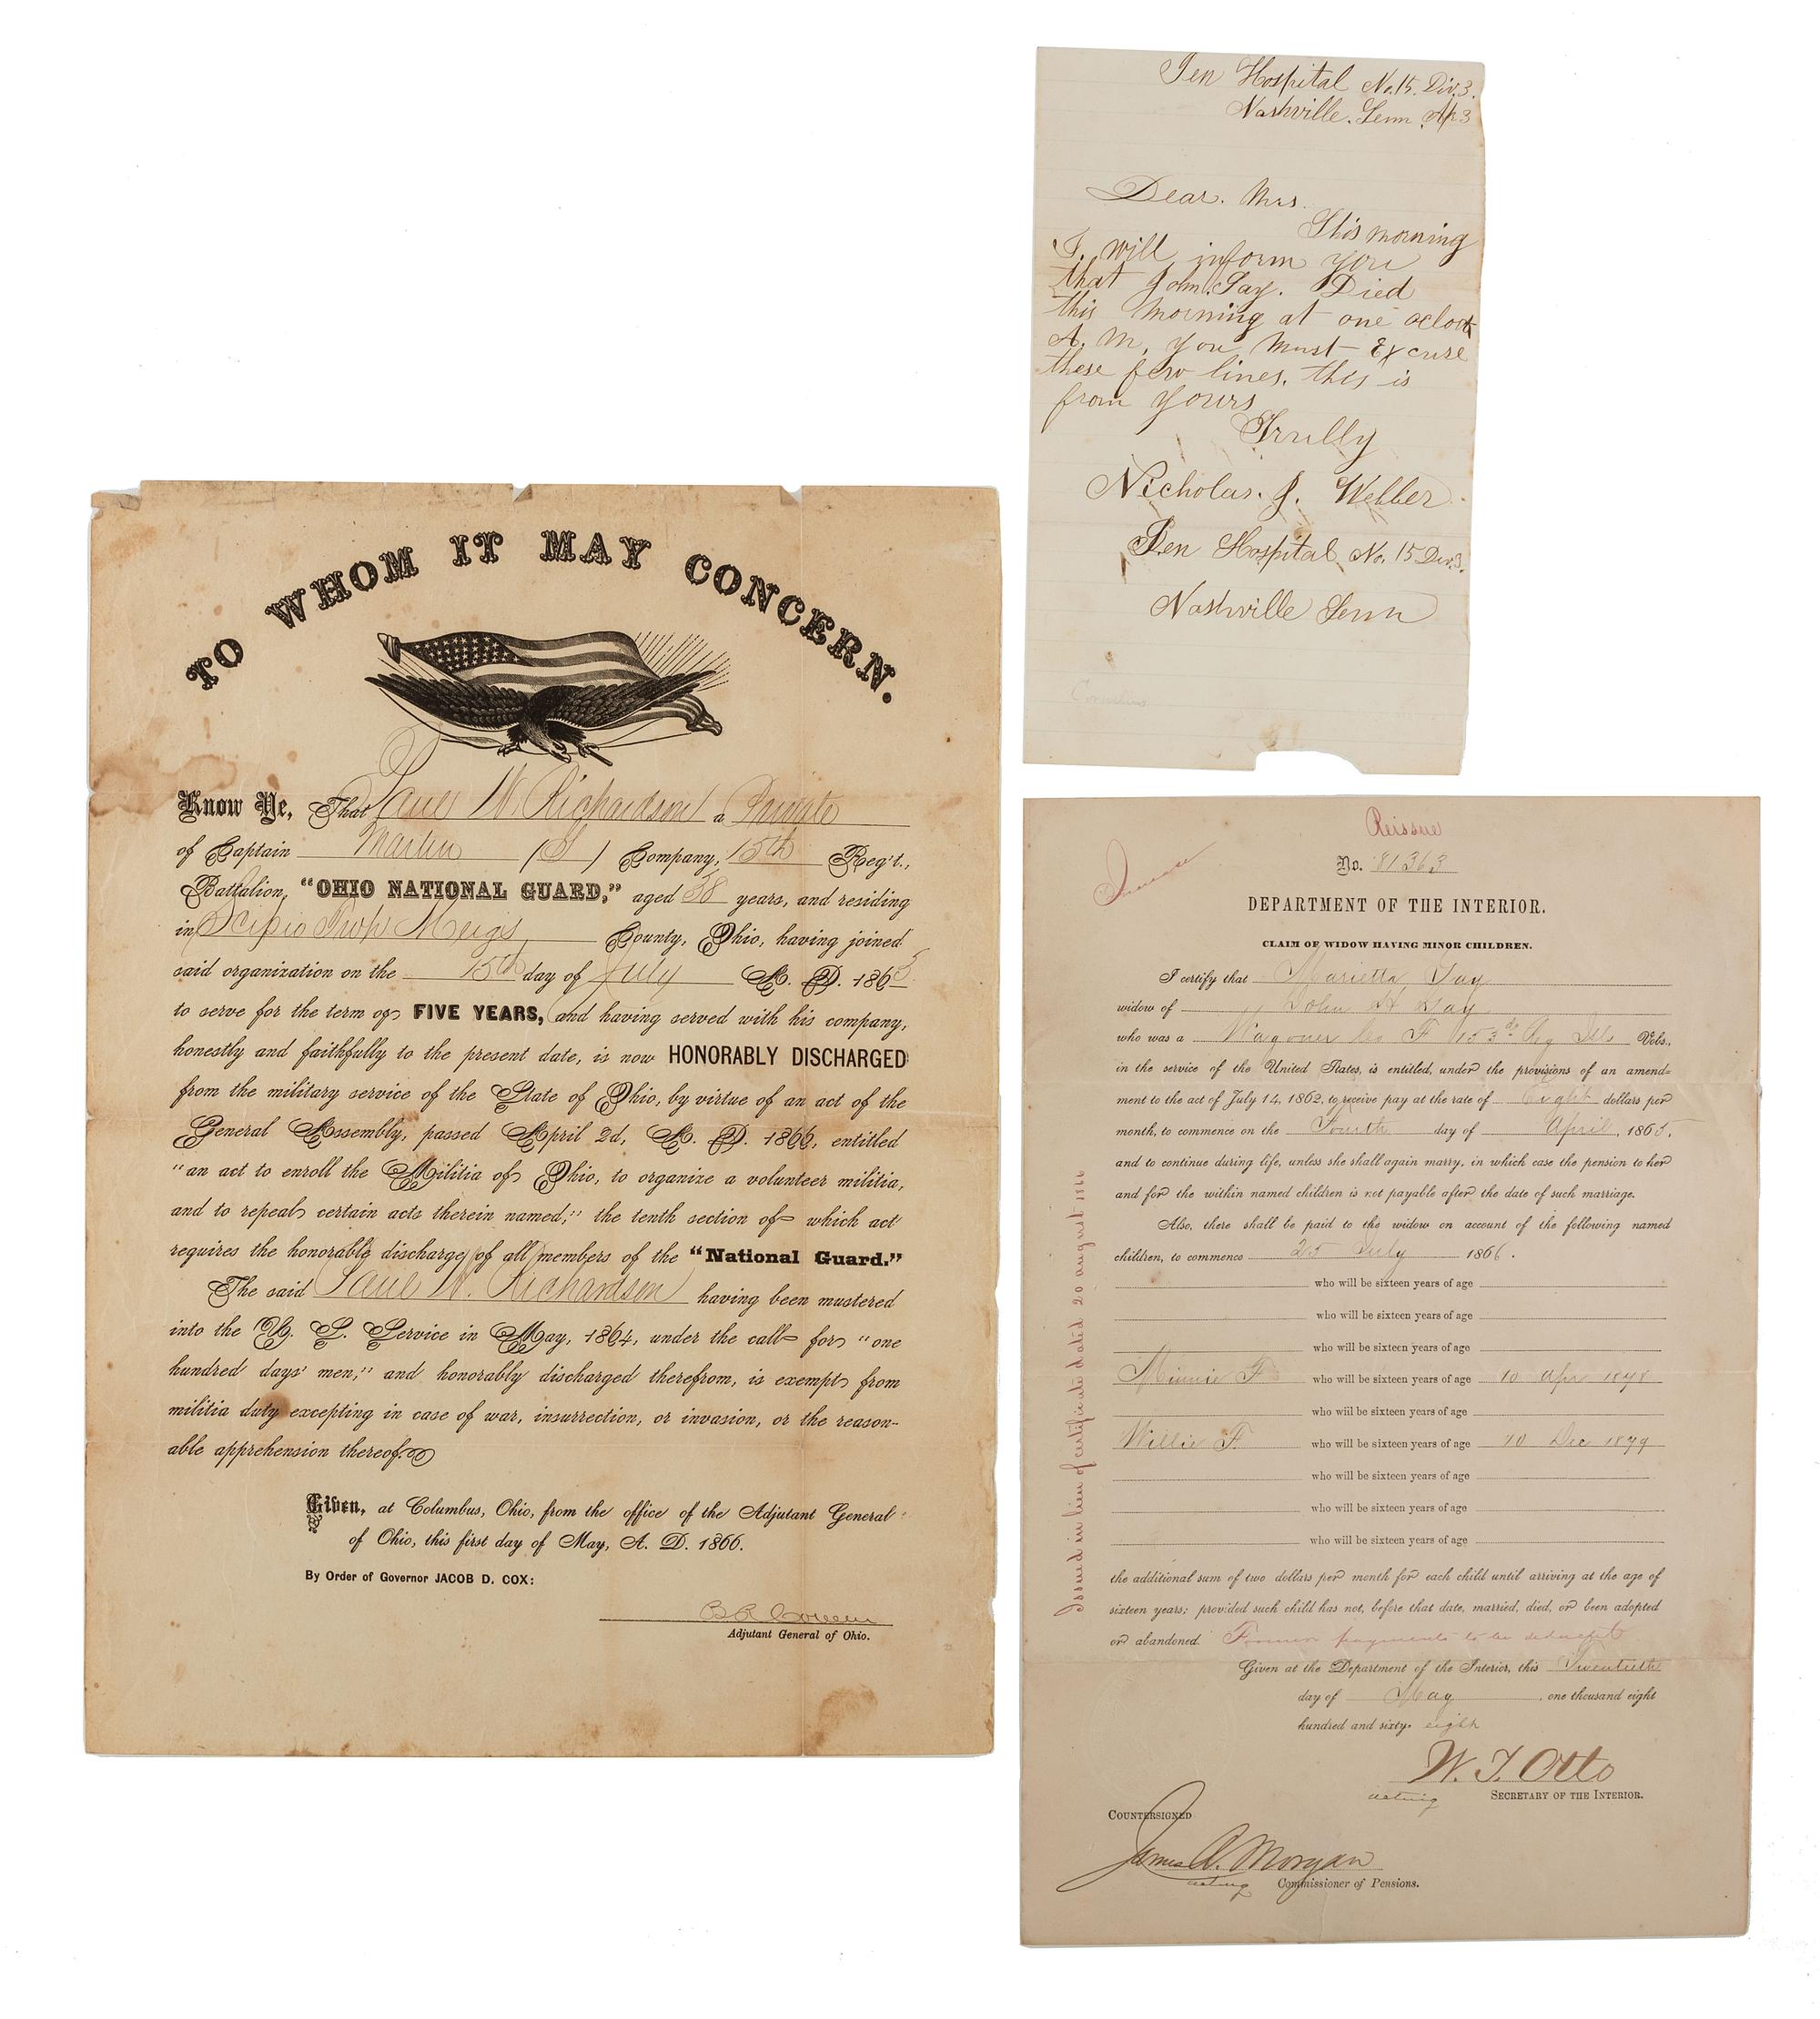 TO WHOM IT MAY CONCERN.
Know Ye, That W. Richardson a Private
of Captain Martin ( ) Company, 15th Reg't.,
Battalion, "OHIO NATIONAL GUARD," aged 38 years, and residing
in Scipio Twp Meigs County, Ohio, having joined
said organization on the 15th day of July A. D. 1863
to serve for the term of FIVE YEARS, and having served with his company,
honestly and faithfully to the present date, is now HONORABLY DISCHARGED
from the military service of the State of Ohio, by virtue of an act of the
General Assembly, passed April 2d, A. D. 1866, entitled
"an act to enroll the Militia of Ohio, to organize a volunteer militia,
and to repeal certain acts therein named;" the tenth section of which act
requires the honorable discharge of all members of the "National Guard."
The said W. Richardson having been mustered
into the U. S. Service in May, 1864, under the call for "one
hundred days' men," and honorably discharged therefrom, is exempt from
militia duty excepting in case of war, insurrection, or invasion, or the reason-
able apprehension thereof.
Given, at Columbus, Ohio, from the office of the Adjutant General
of Ohio, this first day of May, A. D. 1866.
By Order of Governor JACOB D. COX:
B R Cowen
Adjutant General of Ohio.
Hospital No. 15. Div. 3.
Nashville. Tenn. Ap 3
Dear. Mrs.
This morning
I. will inform you
that John. Gay. Died
this morning at one oclock
A. M, you Must Excuse
these few lines. this is
from yours
Trully
Nicholas. J. Webber
Hospital No. 15 Div. 3.
Nashville Tenn
Reissue
Increase
No. 81363
DEPARTMENT OF THE INTERIOR.
CLAIM OF WIDOW HAVING MINOR CHILDREN.
I certify that Marietta Gay
widow of John H Gay
who was a Wagoner Co F 153d Reg Ills Vols.,
in the service of the United States, is entitled, under the provisions of an amend-
ment to the act of July 14, 1862, to receive pay at the rate of Eight dollars per
month, to commence on the Fourth day of April, 1865,
and to continue during life, unless she shall again marry, in which case the pension to her
and for the within named children is not payable after the date of such marriage.
Also, there shall be paid to the widow on account of the following named
children, to commence 25 July 1866.
who will be sixteen years of age
who will be sixteen years of age
who will be sixteen years of age
Minnie F who will be sixteen years of age 10 Apr 1878
who will be sixteen years of age
Willie F who will be sixteen years of age 10 Dec 1879
who will be sixteen years of age
who will be sixteen years of age
who will be sixteen years of age
the additional sum of two dollars per month for each child until arriving at the age of
sixteen years; provided such child has not, before that date, married, died, or been adopted
or abandoned. Former payments to be deducted
Given at the Department of the Interior, this Twentieth
day of May one thousand eight
hundred and sixty- eight
W. T. Otto
acting SECRETARY OF THE INTERIOR.
COUNTERSIGNED
James A. Morgan
acting Commissioner of Pensions.
Issued in lieu of certificate dated 20 august